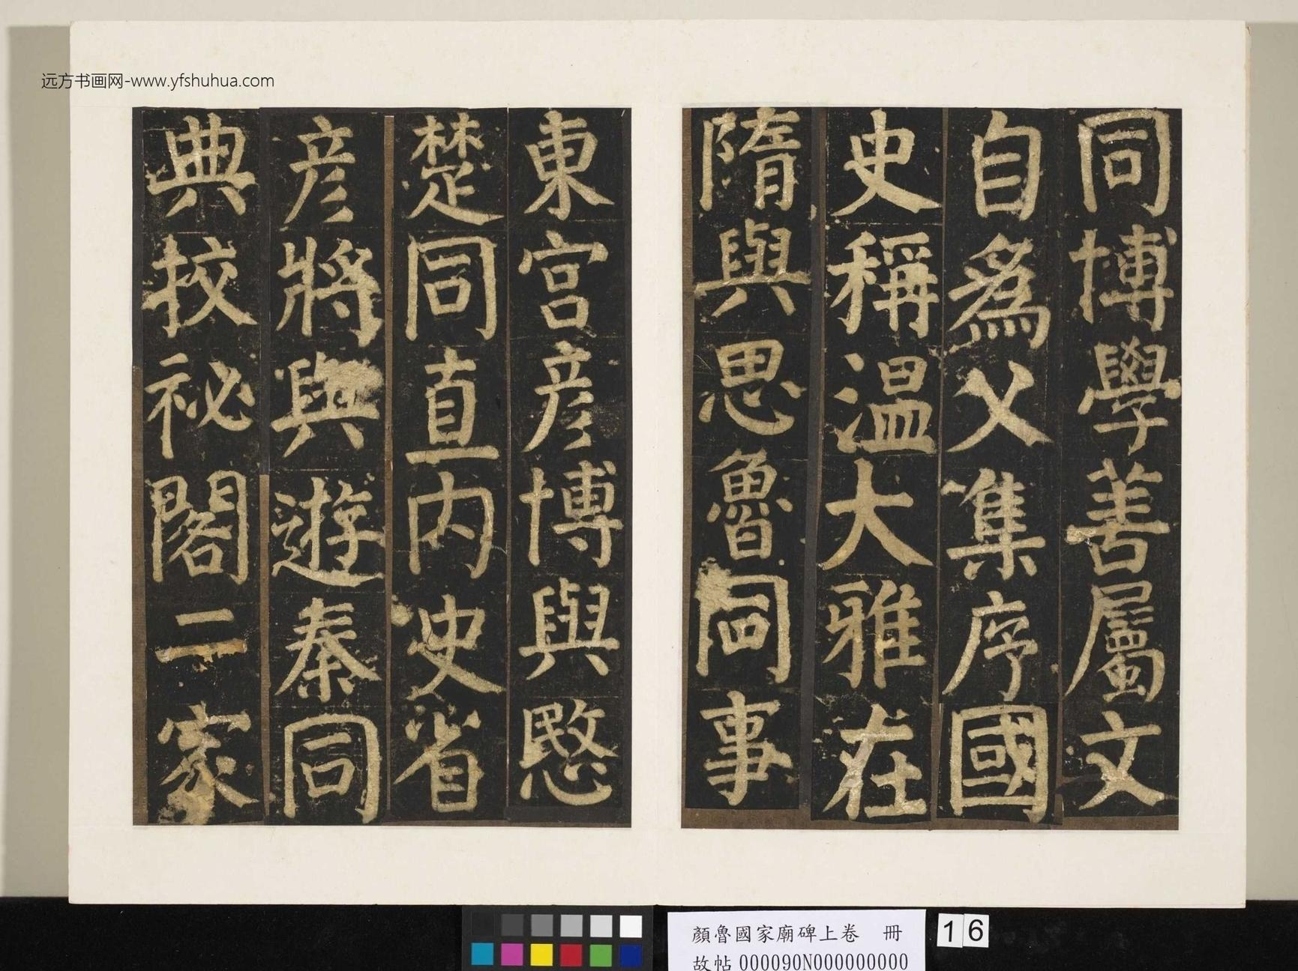 远方书画网-www.yfshuhua.com
同博學善屬文
自為父集序國
史稱温大雅在
隋與思魯同事
東宮彦博與愍
楚同直内史省
彦將與遊秦同
典挍祕閣二家
顏魯國家廟碑上卷 冊
故帖 000090N000000000
16